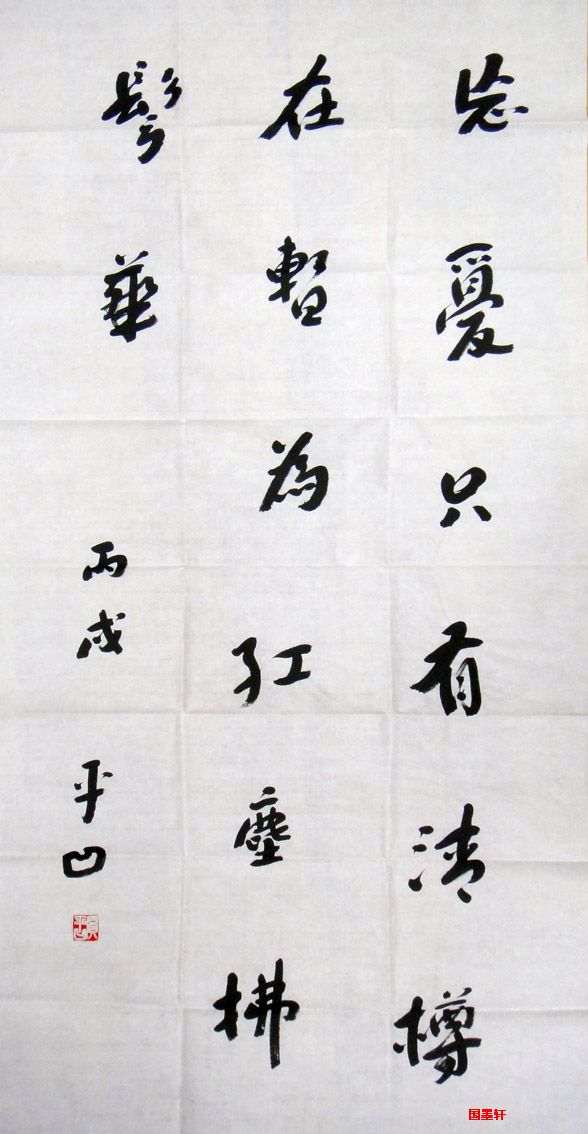 忘憂只有清樽
在暫為紅塵拂
鬢華
丙戌 平凹
国墨轩